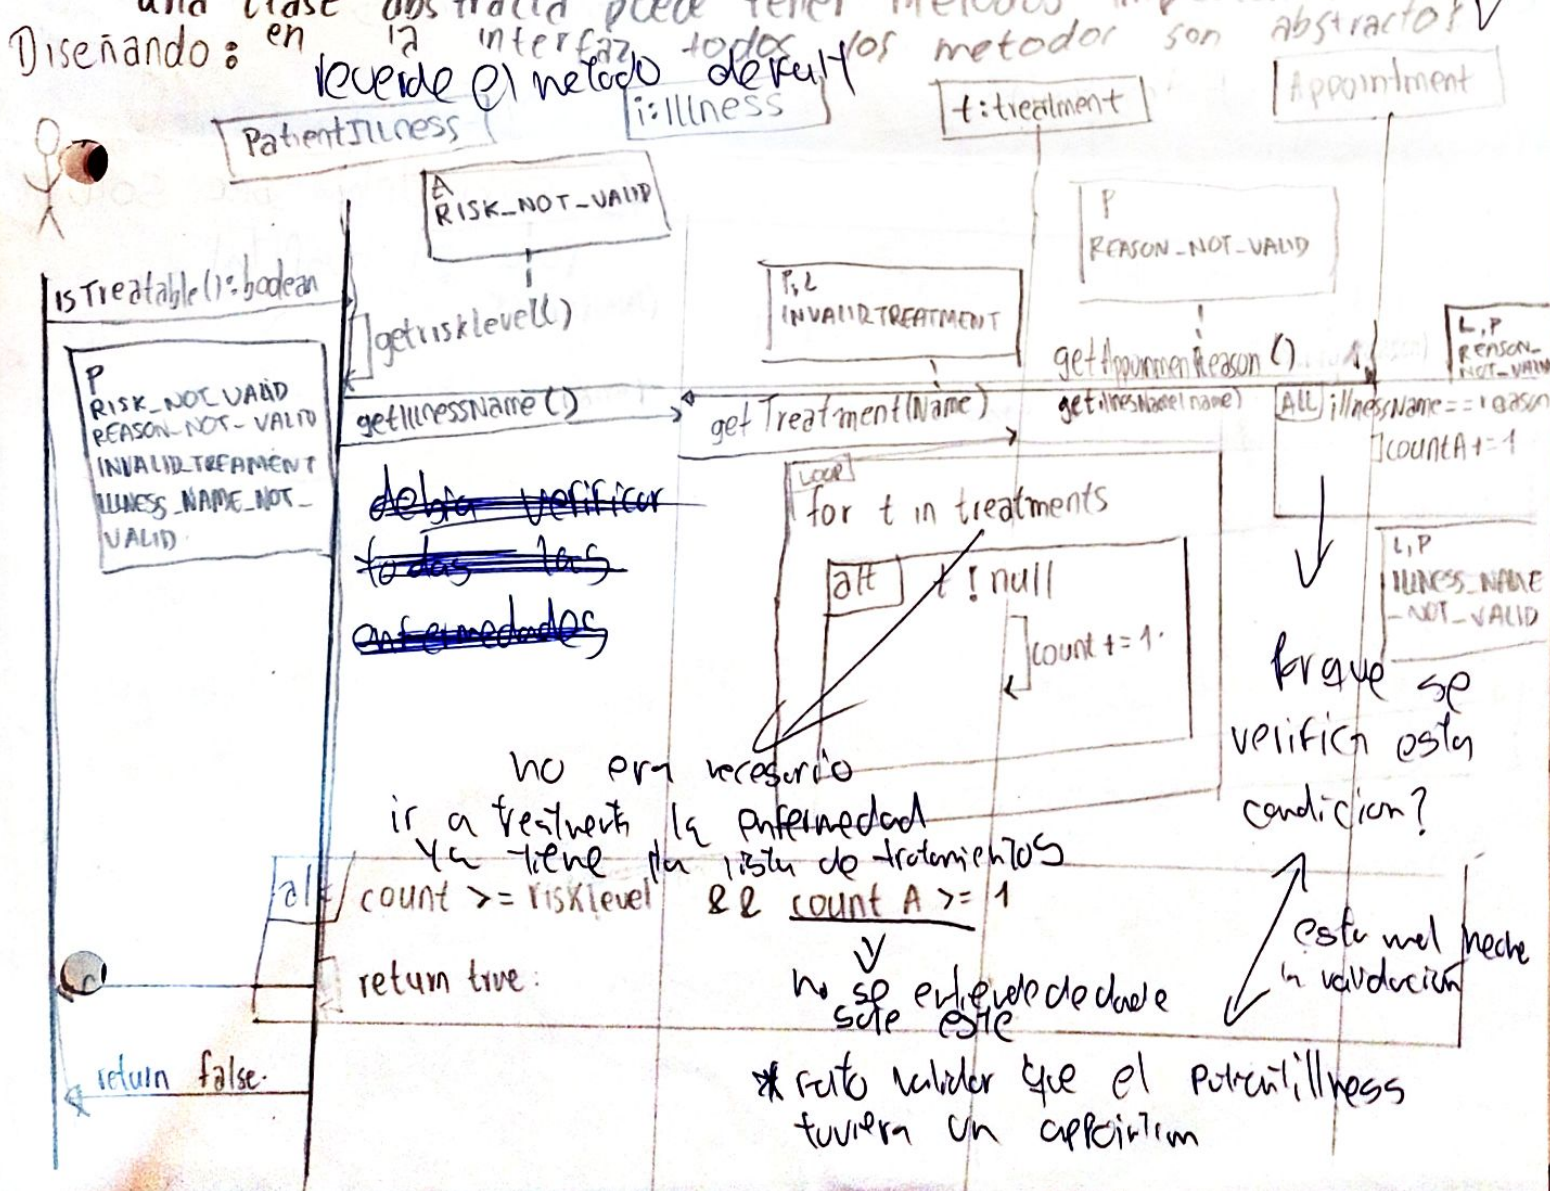 una clase abstracta puede tener metodos
Diseñando: en la interfaz todos los metodor son abstractos
recuerde el metodo default
PatientIllness
i:Illness
t:treatment
Appointment
A
RISK_NOT_VALID
P
REASON_NOT_VALID
isTreatable():boolean
getrisklevel()
P,L
INVALID_TREATMENT
getAppoinmenReason()
L,P
REASON_
NOT_VALID
P
RISK_NOT_VALID
REASON_NOT_VALID
INVALID_TREAMENT
ILLNESS_NAME_NOT_
VALID
getIllnessName()
getTreatment(Name)
getillnesName(name)
ALL illnessName==reason
countA+=1
debia verificar
todas las
enfermedades
LOOP
for t in treatments
alt t ! null
count+=1
L,P
ILLNESS_NAME
_NOT_VALID
Porque se
verifica esta
condicion?
no era necesario
ir a treatment la enfermedad
ya tiene la lista de tratamientos
alt count >= risklevel && count A >= 1
return true.
no se entiende de donde
sale este
esta mal hecha
la validación
return false.
* falto validar que el patientillness
tuviera un appointm